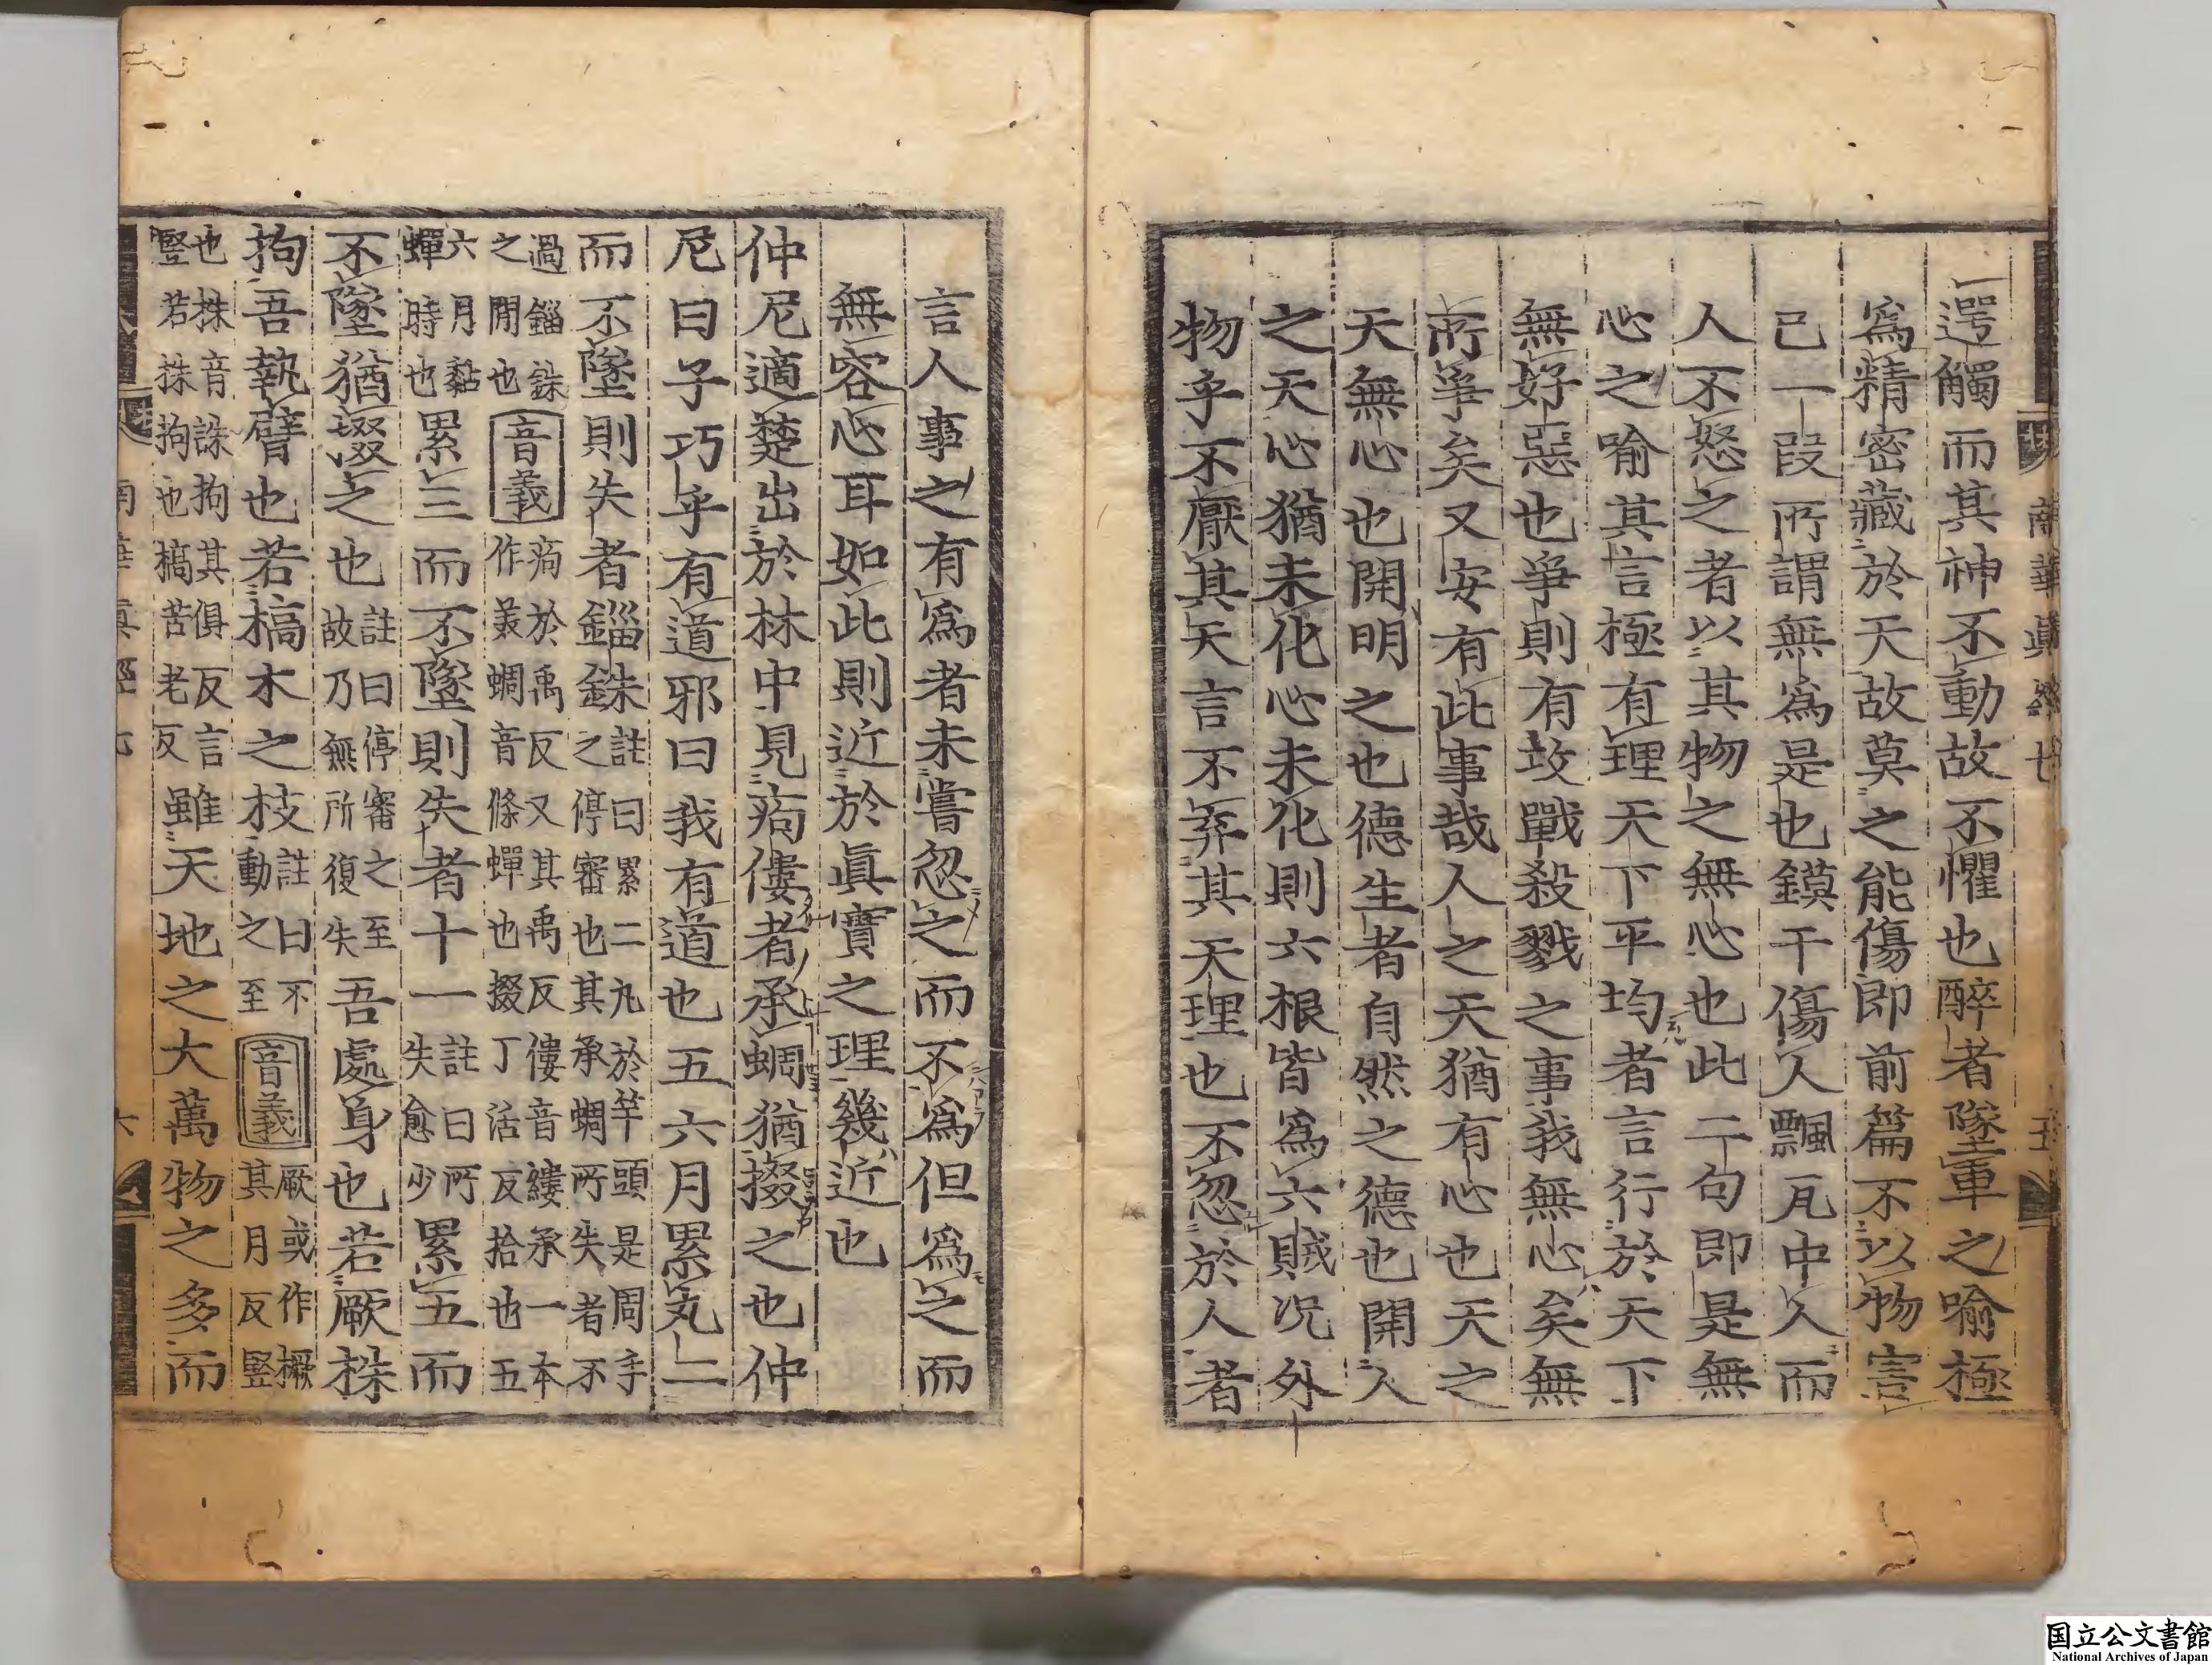 南華眞經七 五
遌觸而其神不動故不懼也醉者墜車之喻極
爲精密藏於天故莫之能傷即前篇不以物害
已一段所謂無爲是也鏌干傷人飄瓦中人而
人不怒之者以其物之無心也此二句即是無
心之喻其言極有理天下平均者言行於天下
無好惡也爭則有攻戰殺戮之事我無心矣無
所爭矣又安有此事哉人之天猶有心也天之
天無心也開明之也德生者自然之德也開人
之天心猶未化心未化則六根皆爲六賊况外
物乎不厭其天言不弃其天理也不忽於人者
言人事之有爲者未嘗忽之而不爲但爲之而
無容心耳如此則近於眞實之理幾近也
仲尼適楚出於林中見痀僂者承蜩猶掇之也仲
尼曰子巧乎有道邪曰我有道也五六月累丸二
而不墜則失者錙銖註曰累二丸於竿頭是周手之停審也其承蜩所失者不
過錙銖之間也音義痀於禹反又其禹反僂音縷承一本作羕蜩音條蟬也掇丁活反拾也五
六月黏蟬時也累三而不墜則失者十一註曰所失愈少累五而
不墜猶掇之也註曰停審之至故乃無所復失吾處身也若厥株
拘吾執臂也若槁木之枝註曰不動之至音義厥或作橛其月反竪
也株音誅拘其俱反言竪若株拘也槁苦老反雖天地之大萬物之多而
南華眞經七 六
国立公文書館
National Archives of Japan